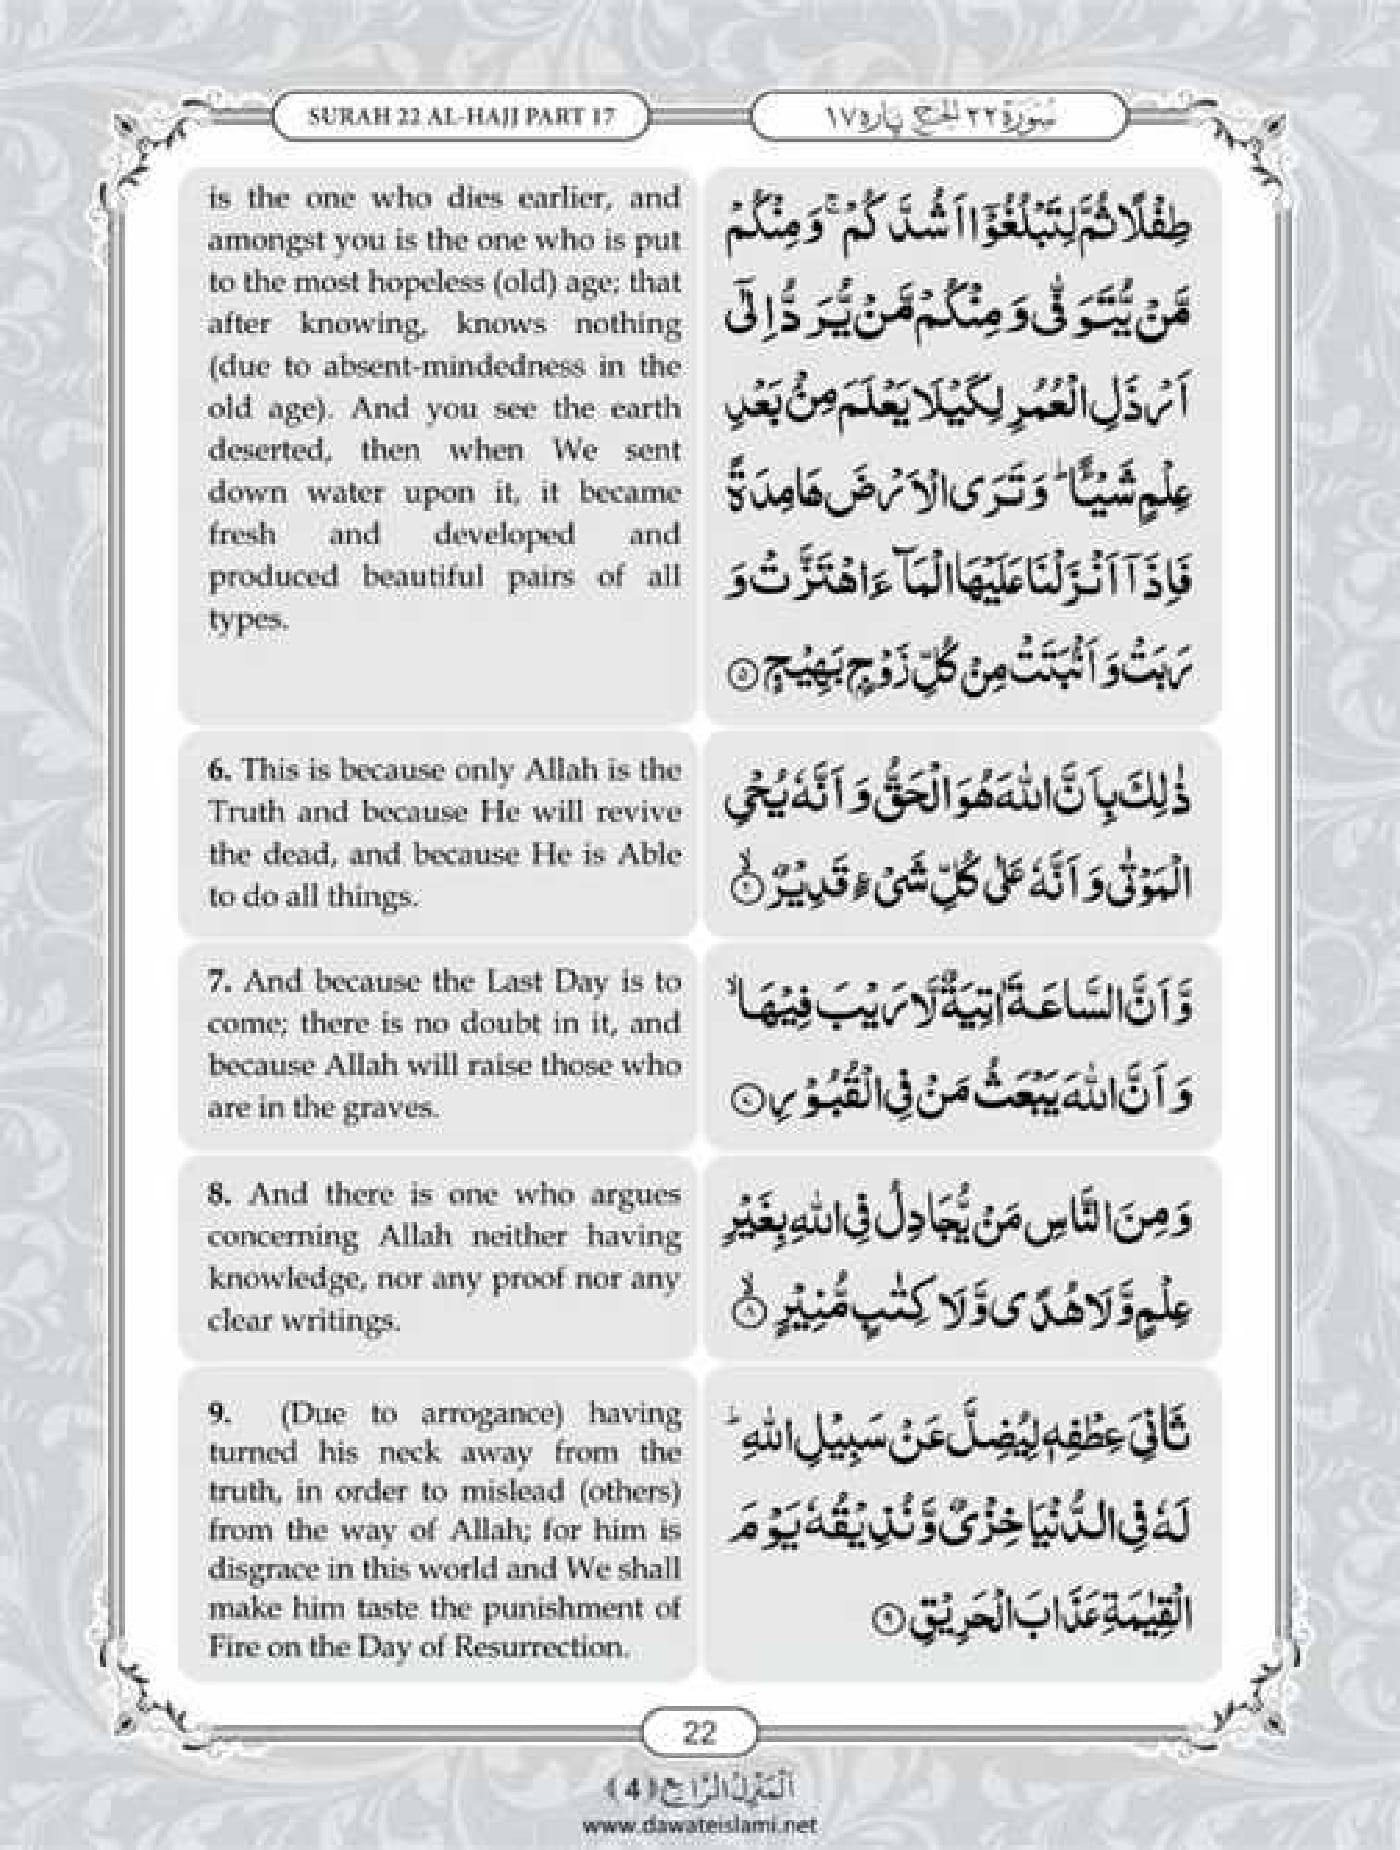 SURAH 22 AL-HAJJ PART 17
سُوْرَةُ ٢٢ الْحَجّ پاره ١٧
is the one who dies earlier, and
amongst you is the one who is put
to the most hopeless (old) age; that
after knowing, knows nothing
(due to absent-mindedness in the
old age). And you see the earth
deserted, then when We sent
down water upon it, it became
fresh and developed and
produced beautiful pairs of all
types.
طِفْلًا ثُمَّ لِتَبْلُغُوْۤا اَشُدَّكُمْ ۚ وَ مِنْكُمْ
مَّنْ یُّتَوَفّٰى وَ مِنْكُمْ مَّنْ یُّرَدُّ اِلٰۤى
اَرْذَلِ الْعُمُرِ لِكَیْلَا یَعْلَمَ مِنْۢ بَعْدِ
عِلْمٍ شَیْــٴًـا ؕ وَ تَرَى الْاَرْضَ هَامِدَةً
فَاِذَاۤ اَنْزَلْنَا عَلَیْهَا الْمَآءَ اهْتَزَّتْ وَ
رَبَتْ وَ اَنْۢبَتَتْ مِنْ كُلِّ زَوْجٍۭ بَهِیْجٍ ﴿۵﴾
6. This is because only Allah is the
Truth and because He will revive
the dead, and because He is Able
to do all things.
ذٰلِكَ بِاَنَّ اللّٰهَ هُوَ الْحَقُّ وَ اَنَّهٗ یُحْیِ
الْمَوْتٰى وَ اَنَّهٗ عَلٰى كُلِّ شَیْءٍ قَدِیْرٌ ﴿۶﴾ۙ
7. And because the Last Day is to
come; there is no doubt in it, and
because Allah will raise those who
are in the graves.
وَّ اَنَّ السَّاعَةَ اٰتِیَةٌ لَّا رَیْبَ فِیْهَا ۙ
وَ اَنَّ اللّٰهَ یَبْعَثُ مَنْ فِی الْقُبُوْرِ ﴿۷﴾
8. And there is one who argues
concerning Allah neither having
knowledge, nor any proof nor any
clear writings.
وَ مِنَ النَّاسِ مَنْ یُّجَادِلُ فِی اللّٰهِ بِغَیْرِ
عِلْمٍ وَّ لَا هُدًى وَّ لَا كِتٰبٍ مُّنِیْرٍ ﴿۸﴾ۙ
9. (Due to arrogance) having
turned his neck away from the
truth, in order to mislead (others)
from the way of Allah; for him is
disgrace in this world and We shall
make him taste the punishment of
Fire on the Day of Resurrection.
ثَانِیَ عِطْفِهٖ لِیُضِلَّ عَنْ سَبِیْلِ اللّٰهِ ؕ
لَهٗ فِی الدُّنْیَا خِزْیٌ وَّ نُذِیْقُهٗ یَوْمَ
الْقِیٰمَةِ عَذَابَ الْحَرِیْقِ ﴿۹﴾
22
اَلْمَنْزِلُ الرَّابِع ﴿4﴾
www.dawateislami.net